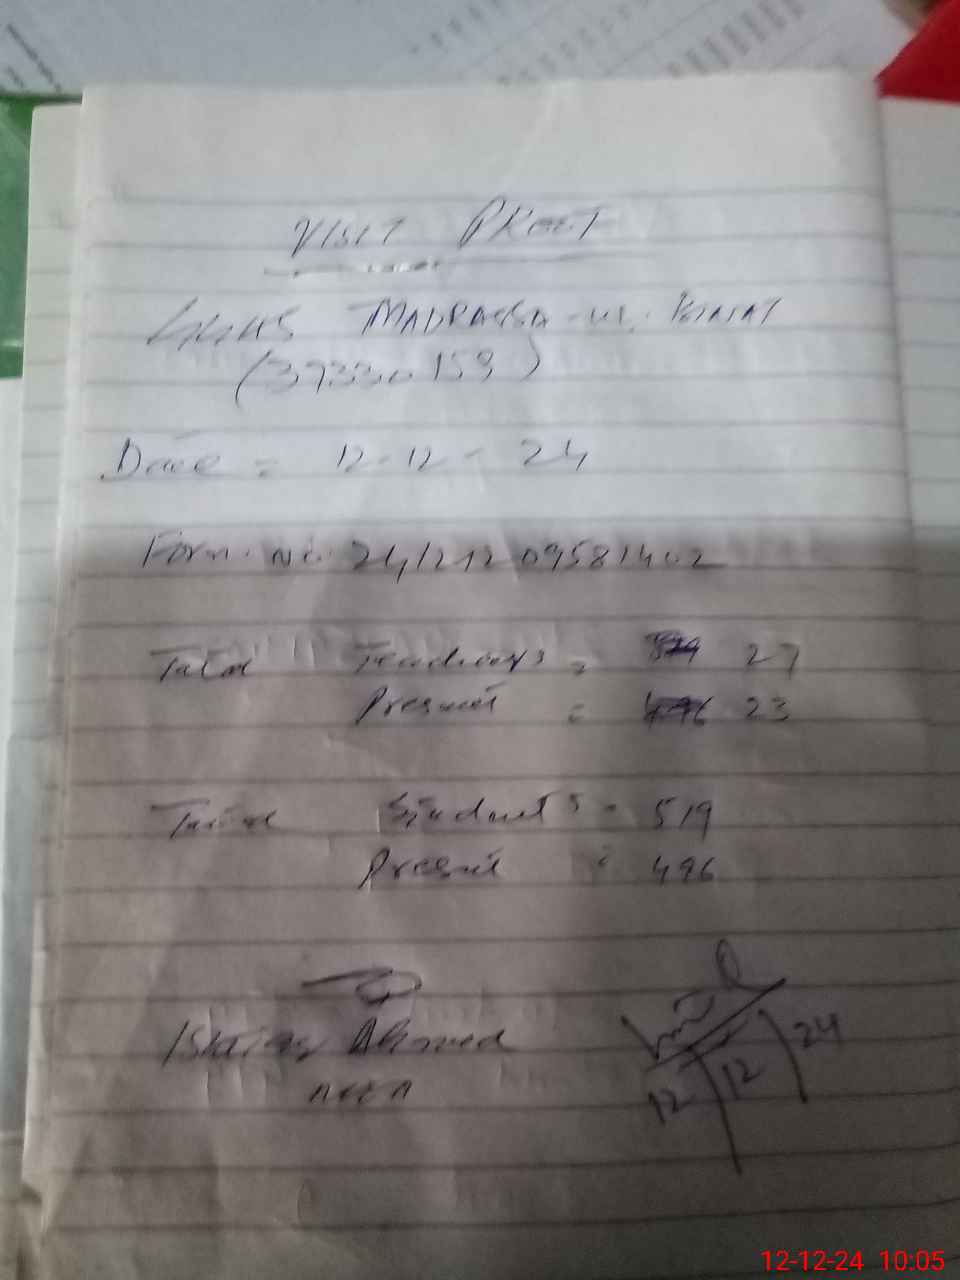 VISIT PROOF
GGHS MADRASSA-UL-BINAT
(37330159)
Date = 12-12-24
Form. No. 24121209581402
Total Teachers = 27
Present = 23
Total Students = 519
Present = 496
Ishtiaq Ahmed
AEEA
12/12/24
12-12-24 10:05